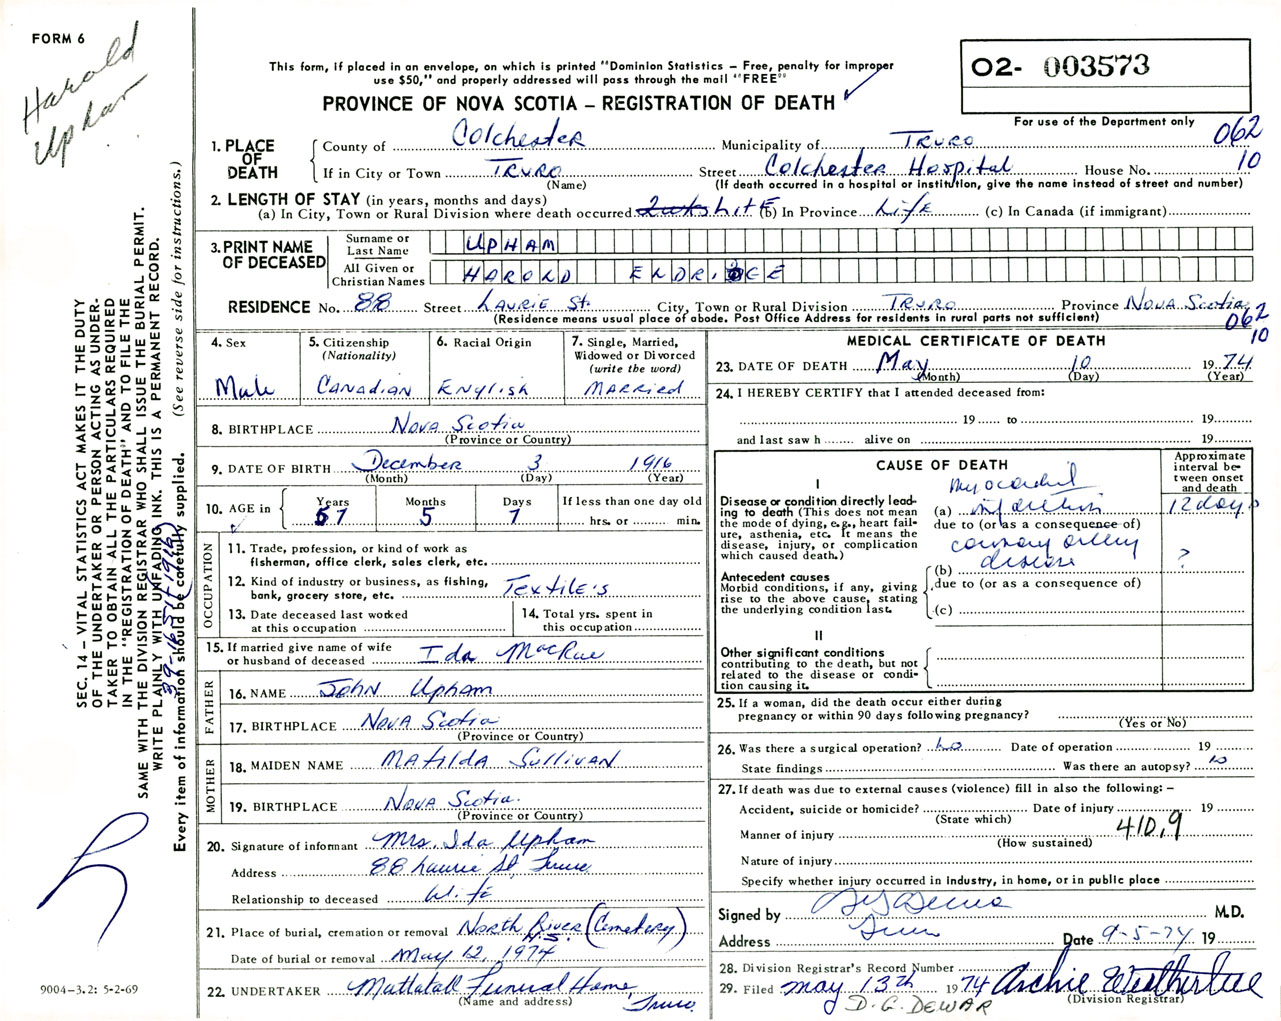 FORM 6
Harold
Upham
This form, if placed in an envelope, on which is printed "Dominion Statistics – Free, penalty for improper
use $50," and properly addressed will pass through the mail "FREE"
02- 003573
For use of the Department only
PROVINCE OF NOVA SCOTIA – REGISTRATION OF DEATH
062
10
1. PLACE OF DEATH
County of Colchester Municipality of Truro
If in City or Town Truro Street Colchester Hospital House No.
(Name) (If death occurred in a hospital or institution, give the name instead of street and number)
2. LENGTH OF STAY (in years, months and days)
(a) In City, Town or Rural Division where death occurred Life (b) In Province Life (c) In Canada (if immigrant)
3. PRINT NAME OF DECEASED
Surname or Last Name UPHAM
All Given or Christian Names HAROLD ELDRIDGE
RESIDENCE No. 88 Street Laurie St. City, Town or Rural Division Truro Province Nova Scotia
(Residence means usual place of abode. Post Office Address for residents in rural parts not sufficient)
062
10
4. Sex
Male
5. Citizenship
(Nationality)
Canadian
6. Racial Origin
English
7. Single, Married,
Widowed or Divorced
(write the word)
Married
8. BIRTHPLACE Nova Scotia
(Province or Country)
9. DATE OF BIRTH December 3 1916
(Month) (Day) (Year)
10. AGE in
Years Months Days If less than one day old
57 5 7 hrs. or min.
OCCUPATION
11. Trade, profession, or kind of work as
fisherman, office clerk, sales clerk, etc.
12. Kind of industry or business, as fishing,
bank, grocery store, etc. Textile's
13. Date deceased last worked
at this occupation
14. Total yrs. spent in
this occupation
15. If married give name of wife
or husband of deceased Ida MacRae
FATHER
16. NAME John Upham
17. BIRTHPLACE Nova Scotia
(Province or Country)
MOTHER
18. MAIDEN NAME Matilda Sullivan
19. BIRTHPLACE Nova Scotia.
(Province or Country)
20. Signature of informant Mrs. Ida Upham
Address 88 Laurie St, Truro
Relationship to deceased Wife
21. Place of burial, cremation or removal North River (Cemetery)
N.S.
Date of burial or removal May 12, 1974
22. UNDERTAKER Mattatall Funeral Home,
(Name and address) Truro.
MEDICAL CERTIFICATE OF DEATH
23. DATE OF DEATH May 10 1974
(Month) (Day) (Year)
24. I HEREBY CERTIFY that I attended deceased from:
19 to 19
and last saw h alive on 19
CAUSE OF DEATH
Approximate
interval be-
tween onset
and death
I
Disease or condition directly lead-
ing to death (This does not mean
the mode of dying, e.g., heart fail-
ure, asthenia, etc. It means the
disease, injury, or complication
which caused death.)
myocardial
(a) infarction 12 days
due to (or as a consequence of)
coronary artery
(b) disease ?
due to (or as a consequence of)
(c)
Antecedent causes
Morbid conditions, if any, giving
rise to the above cause, stating
the underlying condition last.
II
Other significant conditions
contributing to the death, but not
related to the disease or condi-
tion causing it.
25. If a woman, did the death occur either during
pregnancy or within 90 days following pregnancy?
(Yes or No)
26. Was there a surgical operation? No Date of operation 19
State findings Was there an autopsy? no
27. If death was due to external causes (violence) fill in also the following: –
Accident, suicide or homicide? Date of injury 19
(State which)
Manner of injury 410.9
(How sustained)
Nature of injury
Specify whether injury occurred in industry, in home, or in public place
Signed by M.D.
Address Truro Date 9-5-74 19
28. Division Registrar's Record Number
29. Filed May 13th 1974 Archie
(Division Registrar)
D. G. DEWAR
SEC. 14 – VITAL STATISTICS ACT MAKES IT THE DUTY
OF THE UNDERTAKER OR PERSON ACTING AS UNDER-
TAKER TO OBTAIN ALL THE PARTICULARS REQUIRED
IN THE "REGISTRATION OF DEATH" AND TO FILE THE
SAME WITH THE DIVISION REGISTRAR WHO SHALL ISSUE THE BURIAL PERMIT.
WRITE PLAINLY WITH UNFADING INK. THIS IS A PERMANENT RECORD.
Every item of information should be carefully supplied. (See reverse side for instructions.)
9004–3.2: 5-2-69